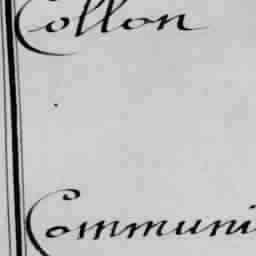 Collon
Communi